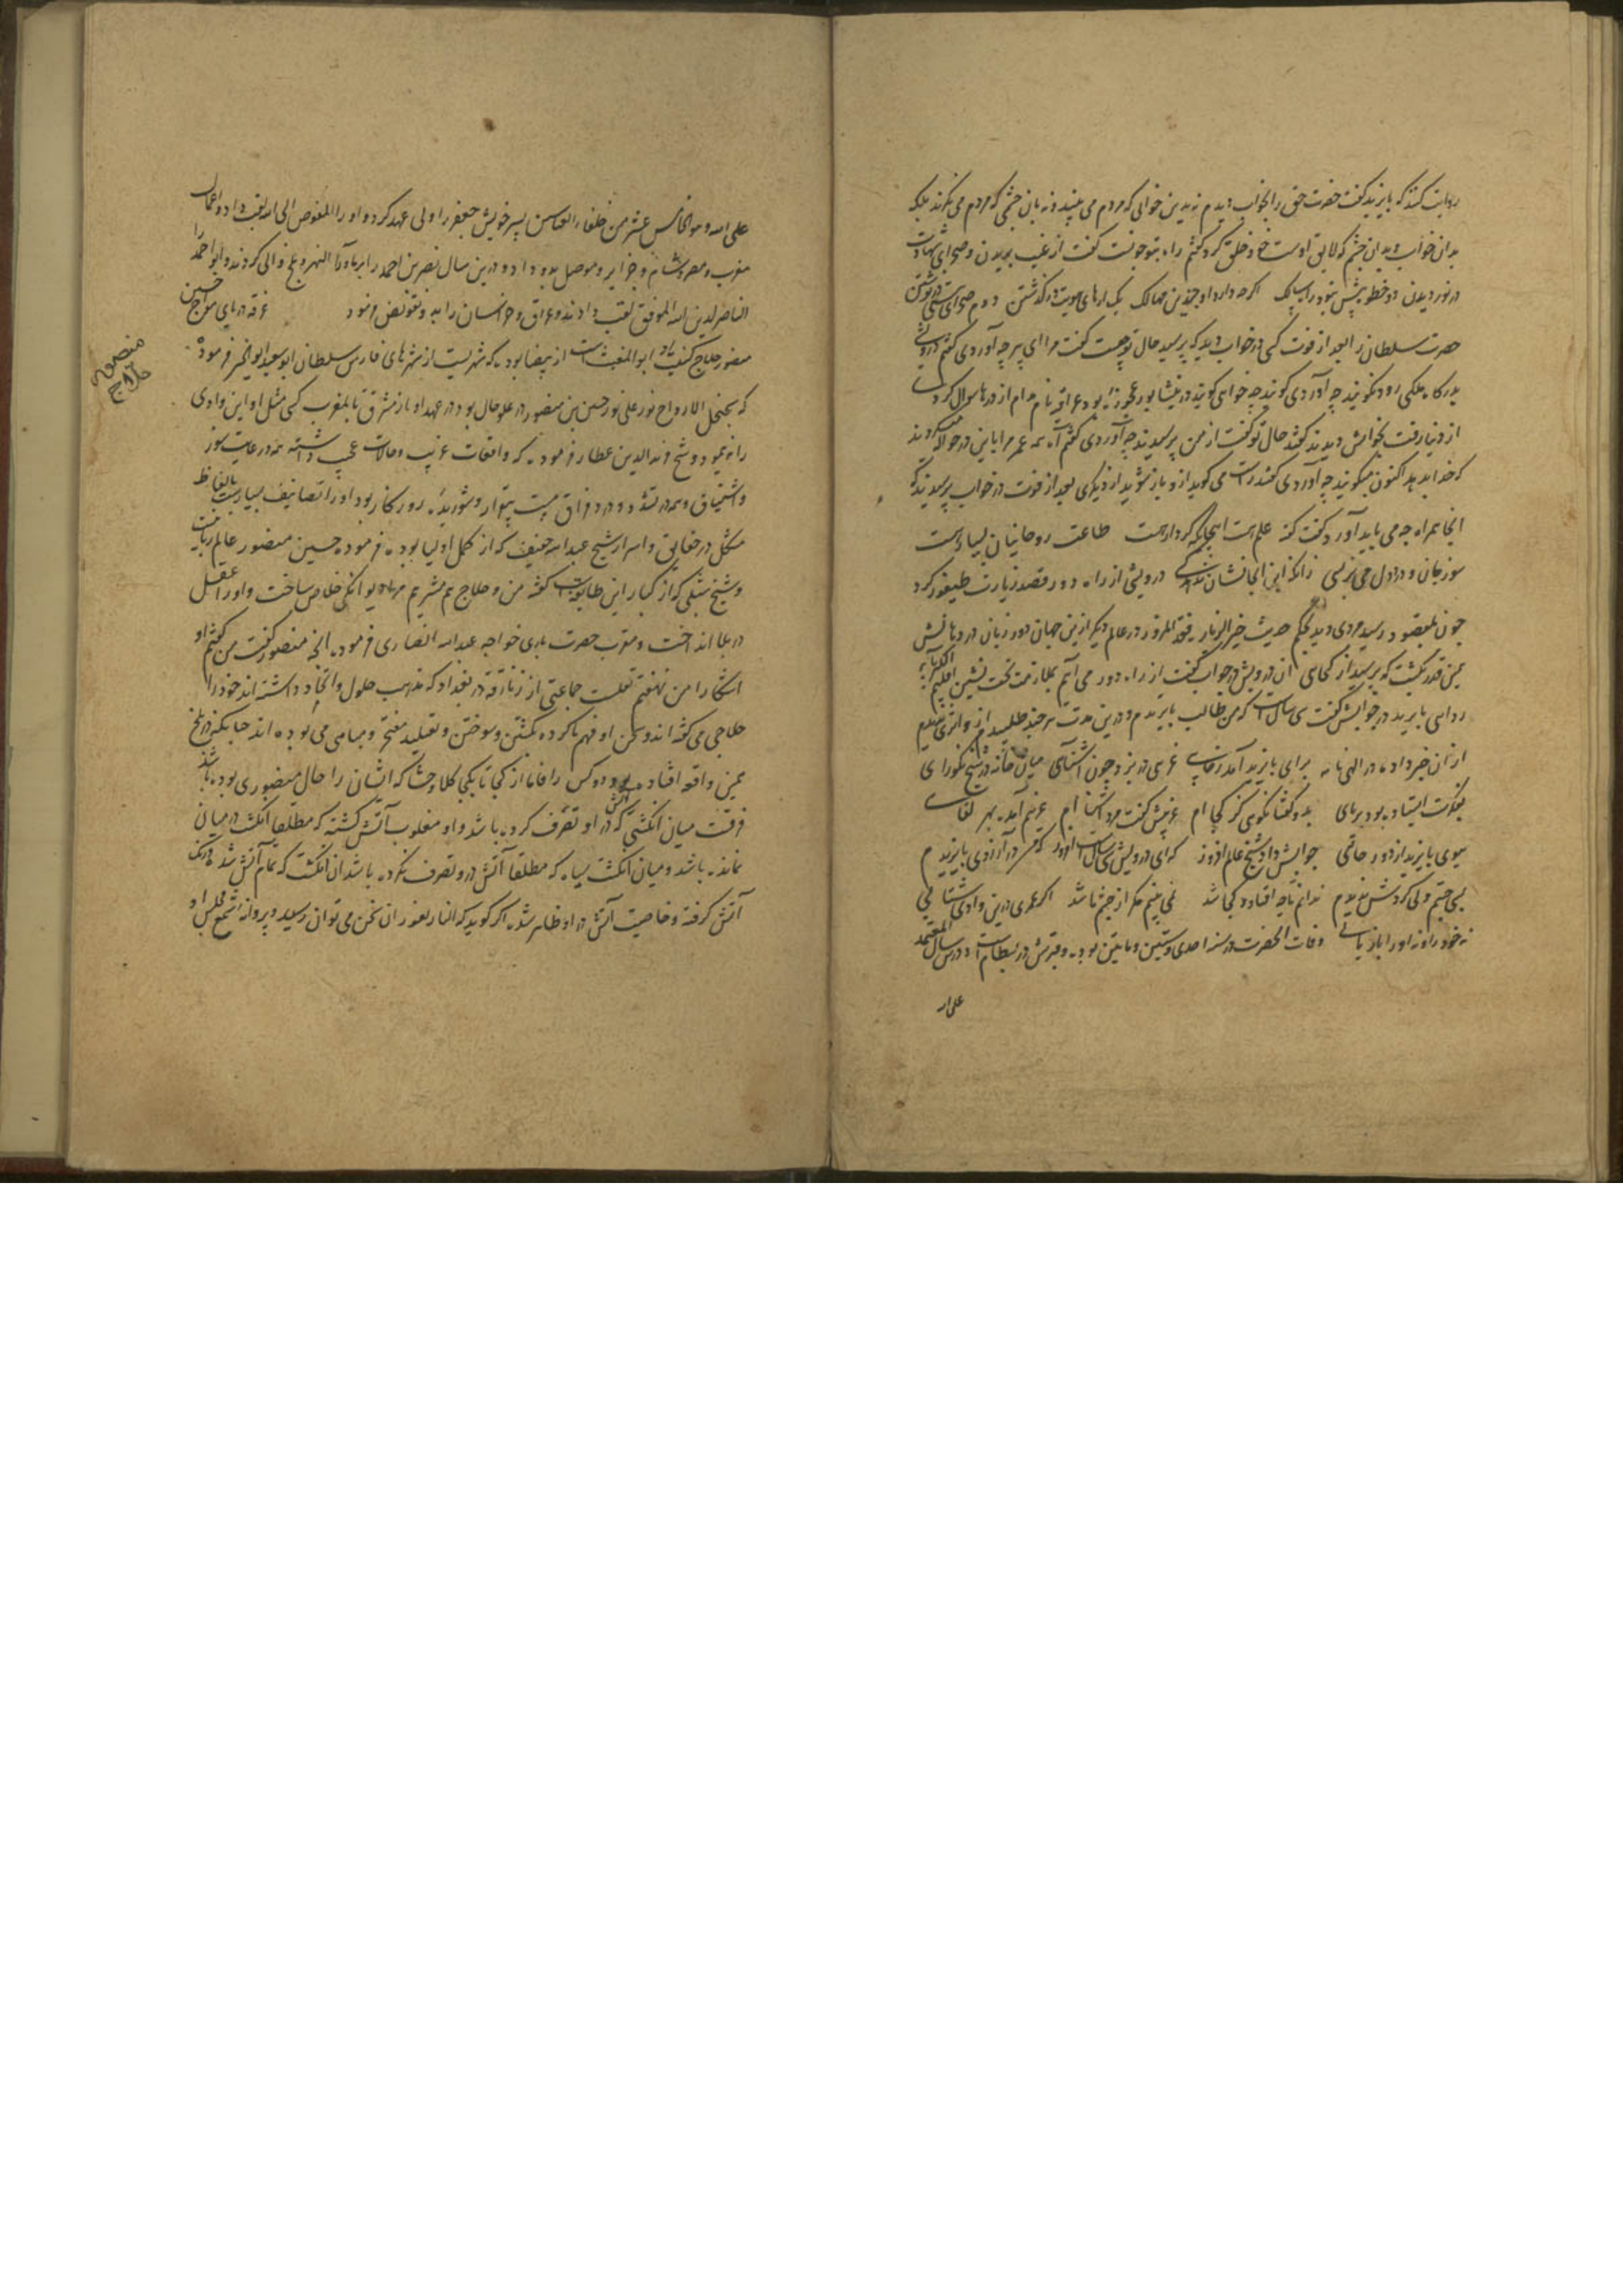 روایت کنند که بایزید گفت حضرت حق را بخواب دیدم نه بدین خوابی که مردم می بینند و نه بان چشمی که مردم می نگرند بلکه
بدان خواب و بدان چشم که لایق اوست خود خلق کرد گفتم راه بتو چونست گفت از غیب بریدن و صحرای شهادت
در نوردیدن دو خطوه بیش نبود راه سالک اگرچه دارد او چندین مهالک یک از های هویت در گذشتن دوم صحرای هستی در نوشتن
حضرت سلطان را بعد از فوت کسی در خواب دید که پرسید حال تو چیست گفت مرا ای پیر چه آوردی گفتم درویشی
بدرگاه ملکی رود نگویند چه آوردی گویند چه خواهی گویند در نیشابور عجوزه بود عراقیه نام مدام از درها سوال کردی
از دنیا رفت بخوابش دیدند گفتند حال تو گفت از من پرسیدند چه آوردی گفتم آه همه عمر مرا باین در حواله میکردند
که خدا بدهد اکنون میگویند چه آوردی گفتند راست می گوید از و باز شوید از دیگری بعد از فوت در خواب پرسیدند که
آنجا همراه چه می باید آورد گفت نه علم هست اینجا نه کردار هست طاعت روحانیان بسیار هست
سوز جان و درد دل می بر بسی زانکه این آنجا نشان ندهد کسی درویشی از راه دور قصد زیارت طیفور کرد
چون بمقصود رسید مردی دید بحکم حدیث
همین قدر نگشت که پرسید از کجایی آن درویش در جواب گفت از راه دور می آیم بملازمت تخت نشین اقلیم
بایزید در جوابش گفت سی سال است که من طالب بایزیدم و درین مدت هر چند طلبیدم از و اثری نیافتم
از آن خبر داده در الهی نامه برای بایزید آمد ز جایی غریبی در بزد چون آشنایی میان خانه در شیخ نکو رای
بفکرت ایستاده بود بر پای بدو گفتا نگویی کز کجایی غریبش گفت مرد آشنا ام غریم آمده بهر لقایی
بسوی بایزید از دور جایی جوابش داد شیخ عالم افروز که ای درویش سی سالست امروز که من در آرزوی بایزیدم
بسی جستم ولی گردش ندیدم ندانم تا چه افتاد و کجا شد نمی بینم مگر از چشم ما شد اگر عمری درین وادی شتابی
نه خود را و نه او را باز یابی وفات آنحضرت در سنه احدی و ستین و مایتین بوده و قبرش در بسطام است و در این سال المعتمد
علی الله
علی الله و هو الخامس عشر من خلفاء العباس پسر خویش جعفر را ولی عهد کرد و او را المفوض الی الله لقب داد و اعمال
مغرب و مصر و شام و جزایر و موصل بدو داد و درین سال نصر بن احمد را بر ماوراء النهر و بلخ والی کردند و ابو احمد را
الناصر لدین الله الموفق لقب دادند و عراق و خراسان را به و تفویض فرمود غرقه دریای مواج حسین
منصور حلاج کنیت او ابوالمغیث است از بیضا بوده که شهریست از شهرهای فارس سلطان ابو سعید ابوالخیر فرموده
که سجنجل الارواح نور علی نور حسین بن منصور در علو حال بود در عهد او باز مشرق تا بمغرب کسی مثل او این وادی
را نه پیمود و شیخ فریدالدین عطار فرموده که واقعات غریب و حالات عجیب داشته همه در غایت سوز
و اشتیاق و همه در شدت و درد فراق مست بیقرار و شوریده روزگار بود او را تصانیف بسیارست بالفاظ
مشکل در حقایق و اسرار شیخ عبدالله خفیف که از کمل اولیا بوده فرموده حسین منصور عالم ربانیست
و شیخ شبلی که از کبار این طایفه است گفته من و حلاج هم مشربیم مرا دیوانگی خلاص ساخت و او را عقل
در بلا انداخت و مقرب حضرت باری خواجه عبدالله انصاری فرموده آنچه منصور گفت من گفتم او
آشکارا من نهفتم جماعتی از زنادقه در بغداد که مذهب حلول و اتحاد داشته اند خود را
حلاجی می گفته اند و سخن او فهم ناکرده بکشتن و سوختن و تقلید مفتخر و مباهی می بوده اند چنانکه در بلخ
همین واقعه افتاده بود دو کس را فاما از کجا تا بکجا کلا و حاشا که ایشان را حال منصوری بوده باشد
فرقست میان انگشتی که آتش در او تصرف کرده باشد و او مغلوب آتش گشته که مطلقا انگشت در میان
نمانده باشد و میان انگشت سیاه که مطلقا آتش درو تصرف نکرده باشد آن انگشت که تمام آتش شد و رنگ
آتش گرفته و خاصیت آتش در او ظاهر شده اگر گوید که انا النار بغور آن سخن می توان رسید و پروانه شمع مجلس او
منصور
حلاج